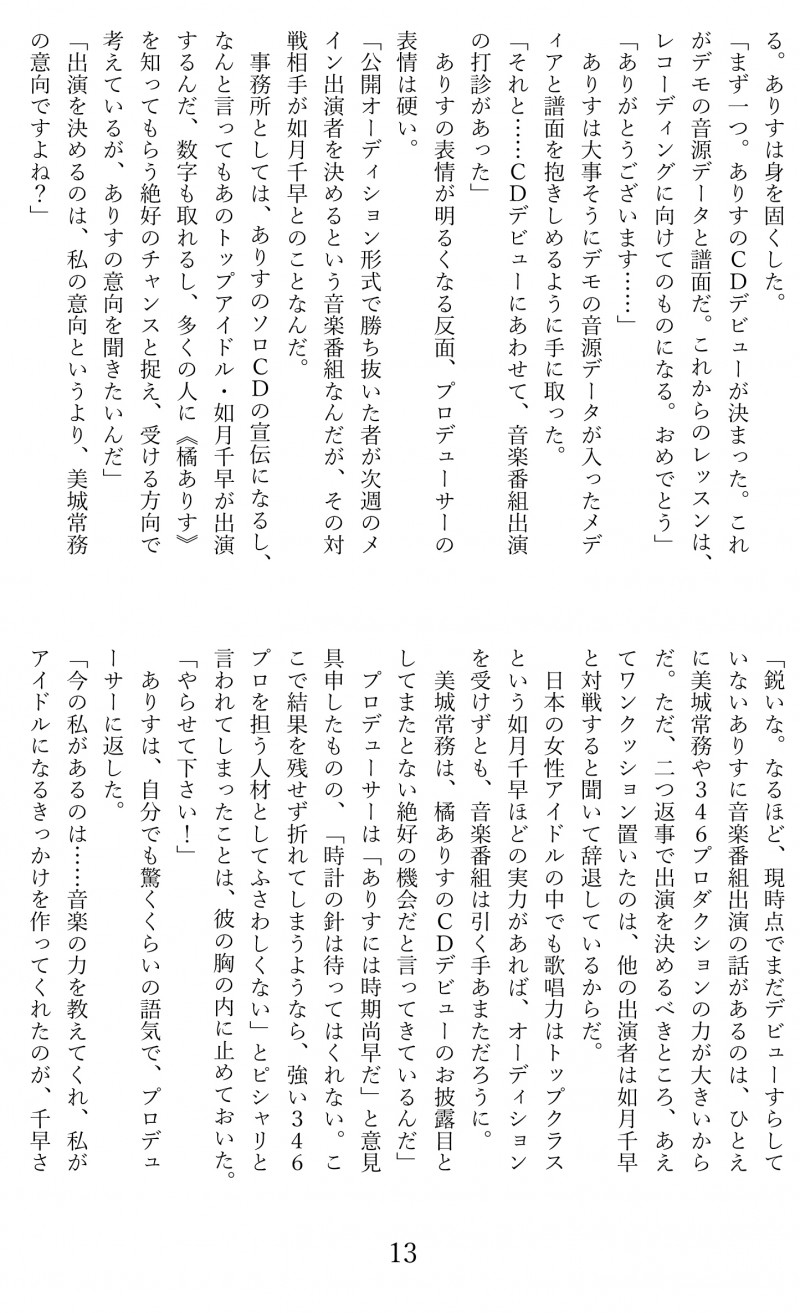 る。ありすは身を固くした。
「まず一つ。ありすのＣＤデビューが決まった。これ
がデモの音源データと譜面だ。これからのレッスンは、
レコーディングに向けてのものになる。おめでとう」
「ありがとうございます……」
　ありすは大事そうにデモの音源データが入ったメデ
ィアと譜面を抱きしめるように手に取った。
「それと……ＣＤデビューにあわせて、音楽番組出演
の打診があった」
　ありすの表情が明るくなる反面、プロデューサーの
表情は硬い。
「公開オーディション形式で勝ち抜いた者が次週のメ
イン出演者を決めるという音楽番組なんだが、その対
戦相手が如月千早とのことなんだ。
　事務所としては、ありすのソロＣＤの宣伝になるし、
なんと言ってもあのトップアイドル・如月千早が出演
するんだ、数字も取れるし、多くの人に《橘ありす》
を知ってもらう絶好のチャンスと捉え、受ける方向で
考えているが、ありすの意向を聞きたいんだ」
「出演を決めるのは、私の意向というより、美城常務
の意向ですよね？」
「鋭いな。なるほど、現時点でまだデビューすらして
いないありすに音楽番組出演の話があるのは、ひとえ
に美城常務や３４６プロダクションの力が大きいから
だ。ただ、二つ返事で出演を決めるべきところ、あえ
てワンクッション置いたのは、他の出演者は如月千早
と対戦すると聞いて辞退しているからだ。
　日本の女性アイドルの中でも歌唱力はトップクラス
という如月千早ほどの実力があれば、オーディション
を受けずとも、音楽番組は引く手あまただろうに。
　美城常務は、橘ありすのＣＤデビューのお披露目と
してまたとない絶好の機会だと言ってきているんだ」
　プロデューサーは「ありすには時期尚早だ」と意見
具申したものの、「時計の針は待ってはくれない。こ
こで結果を残せず折れてしまうようなら、強い３４６
プロを担う人材としてふさわしくない」とピシャリと
言われてしまったことは、彼の胸の内に止めておいた。
「やらせて下さい！」
　ありすは、自分でも驚くくらいの語気で、プロデュ
ーサーに返した。
「今の私があるのは……音楽の力を教えてくれ、私が
アイドルになるきっかけを作ってくれたのが、千早さ
13